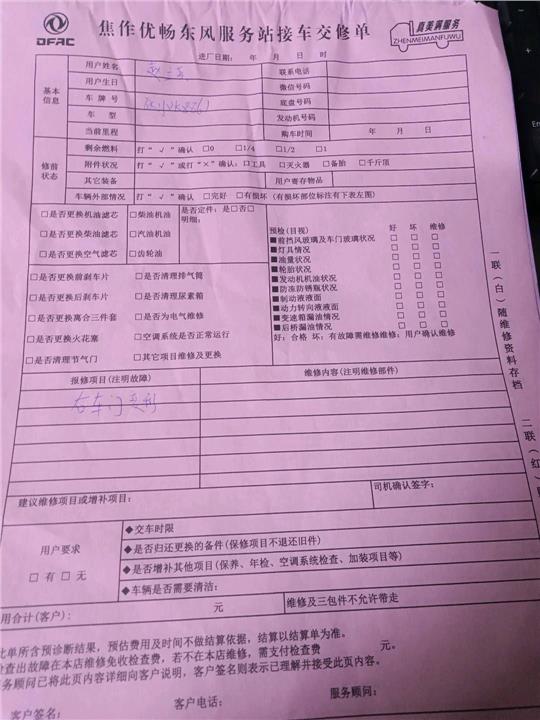 DFAC
焦作优畅东风服务站接车交修单
真美满服务
ZHENMEIMANFUWU
进厂日期: 年 月 日 时
基本信息
用户姓名 联系电话
用户生日 微信号码
车牌号 底盘号码
车型 发动机号码
当前里程 购车时间 年 月 日
修前状态
剩余燃料 打“√”确认 □0 □1/4 □1/2 □1
附件状况 打“√”或打“×”确认: □工具 □灭火器 □备胎 □千斤顶
其它装备 用户寄存物品
车辆外部情况 打“√”确认 □完好 □有损坏 (有损坏部位标注有下表左图)
□是否更换机油滤芯 □柴油机油 是否定件: 是□否□
明细:
□是否更换柴油滤芯 □汽油机油
□是否更换空气滤芯 □齿轮油
□是否更换前刹车片 □是否清理排气筒
□是否更换后刹车片 □是否清理尿素箱
□是否更换离合三件套 □是否为电气维修
□是否更换火花塞 □空调系统是否正常运行
□是否清理节气门 □其它项目维修及更换
预检(目视) 好 坏 维修
■前挡风玻璃及车门玻璃状况 □ □ □
■灯具情况 □ □ □
■油量状况 □ □ □
■轮胎状况 □ □ □
■发动机机油状况 □ □ □
■防冻防锈瓶状况 □ □ □
■制动液液面 □ □ □
■动力转向液液面 □ □ □
■变速箱漏油情况 □ □ □
■后桥漏油情况 □ □ □
好: 合格 坏: 有故障需维修维修: 用户确认维修
报修项目(注明故障) 维修内容(注明维修部件)
右车门
建议维修项目或增补项目: 司机确认签字:
用户要求
□有 □无
◆交车时限
◆是否归还更换的备件(保修项目不退还旧件)
◆是否增补其他项目(保养、年检、空调系统检查、加装项目等)
◆车辆是否需要清洁:
用合计(客户): 元 维修及三包件不允许带走
此单所含预诊断结果，预估费用及时间不做结算依据，结算以结算单为准。
检查出故障在本店维修免收检查费，若不在本店维修，需支付检查费 元。
务顾问已将此页内容详细向客户说明，客户签名则表示已理解并接受此页内容。
客户签名: 客户电话: 服务顾问:
一联(白)随维修资料存档
二联(红)